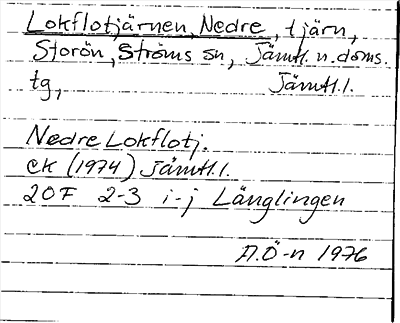 Lokflotjärnen, Nedre, tjärn,
Storön, Ströms sn, Jämtl. n. doms.
tg, Jämtl. l.
Nedre Lokflotj.
ek (1974) Jämtl. l.
20F 2-3 i-j Länglingen
A.Ö-n 1976